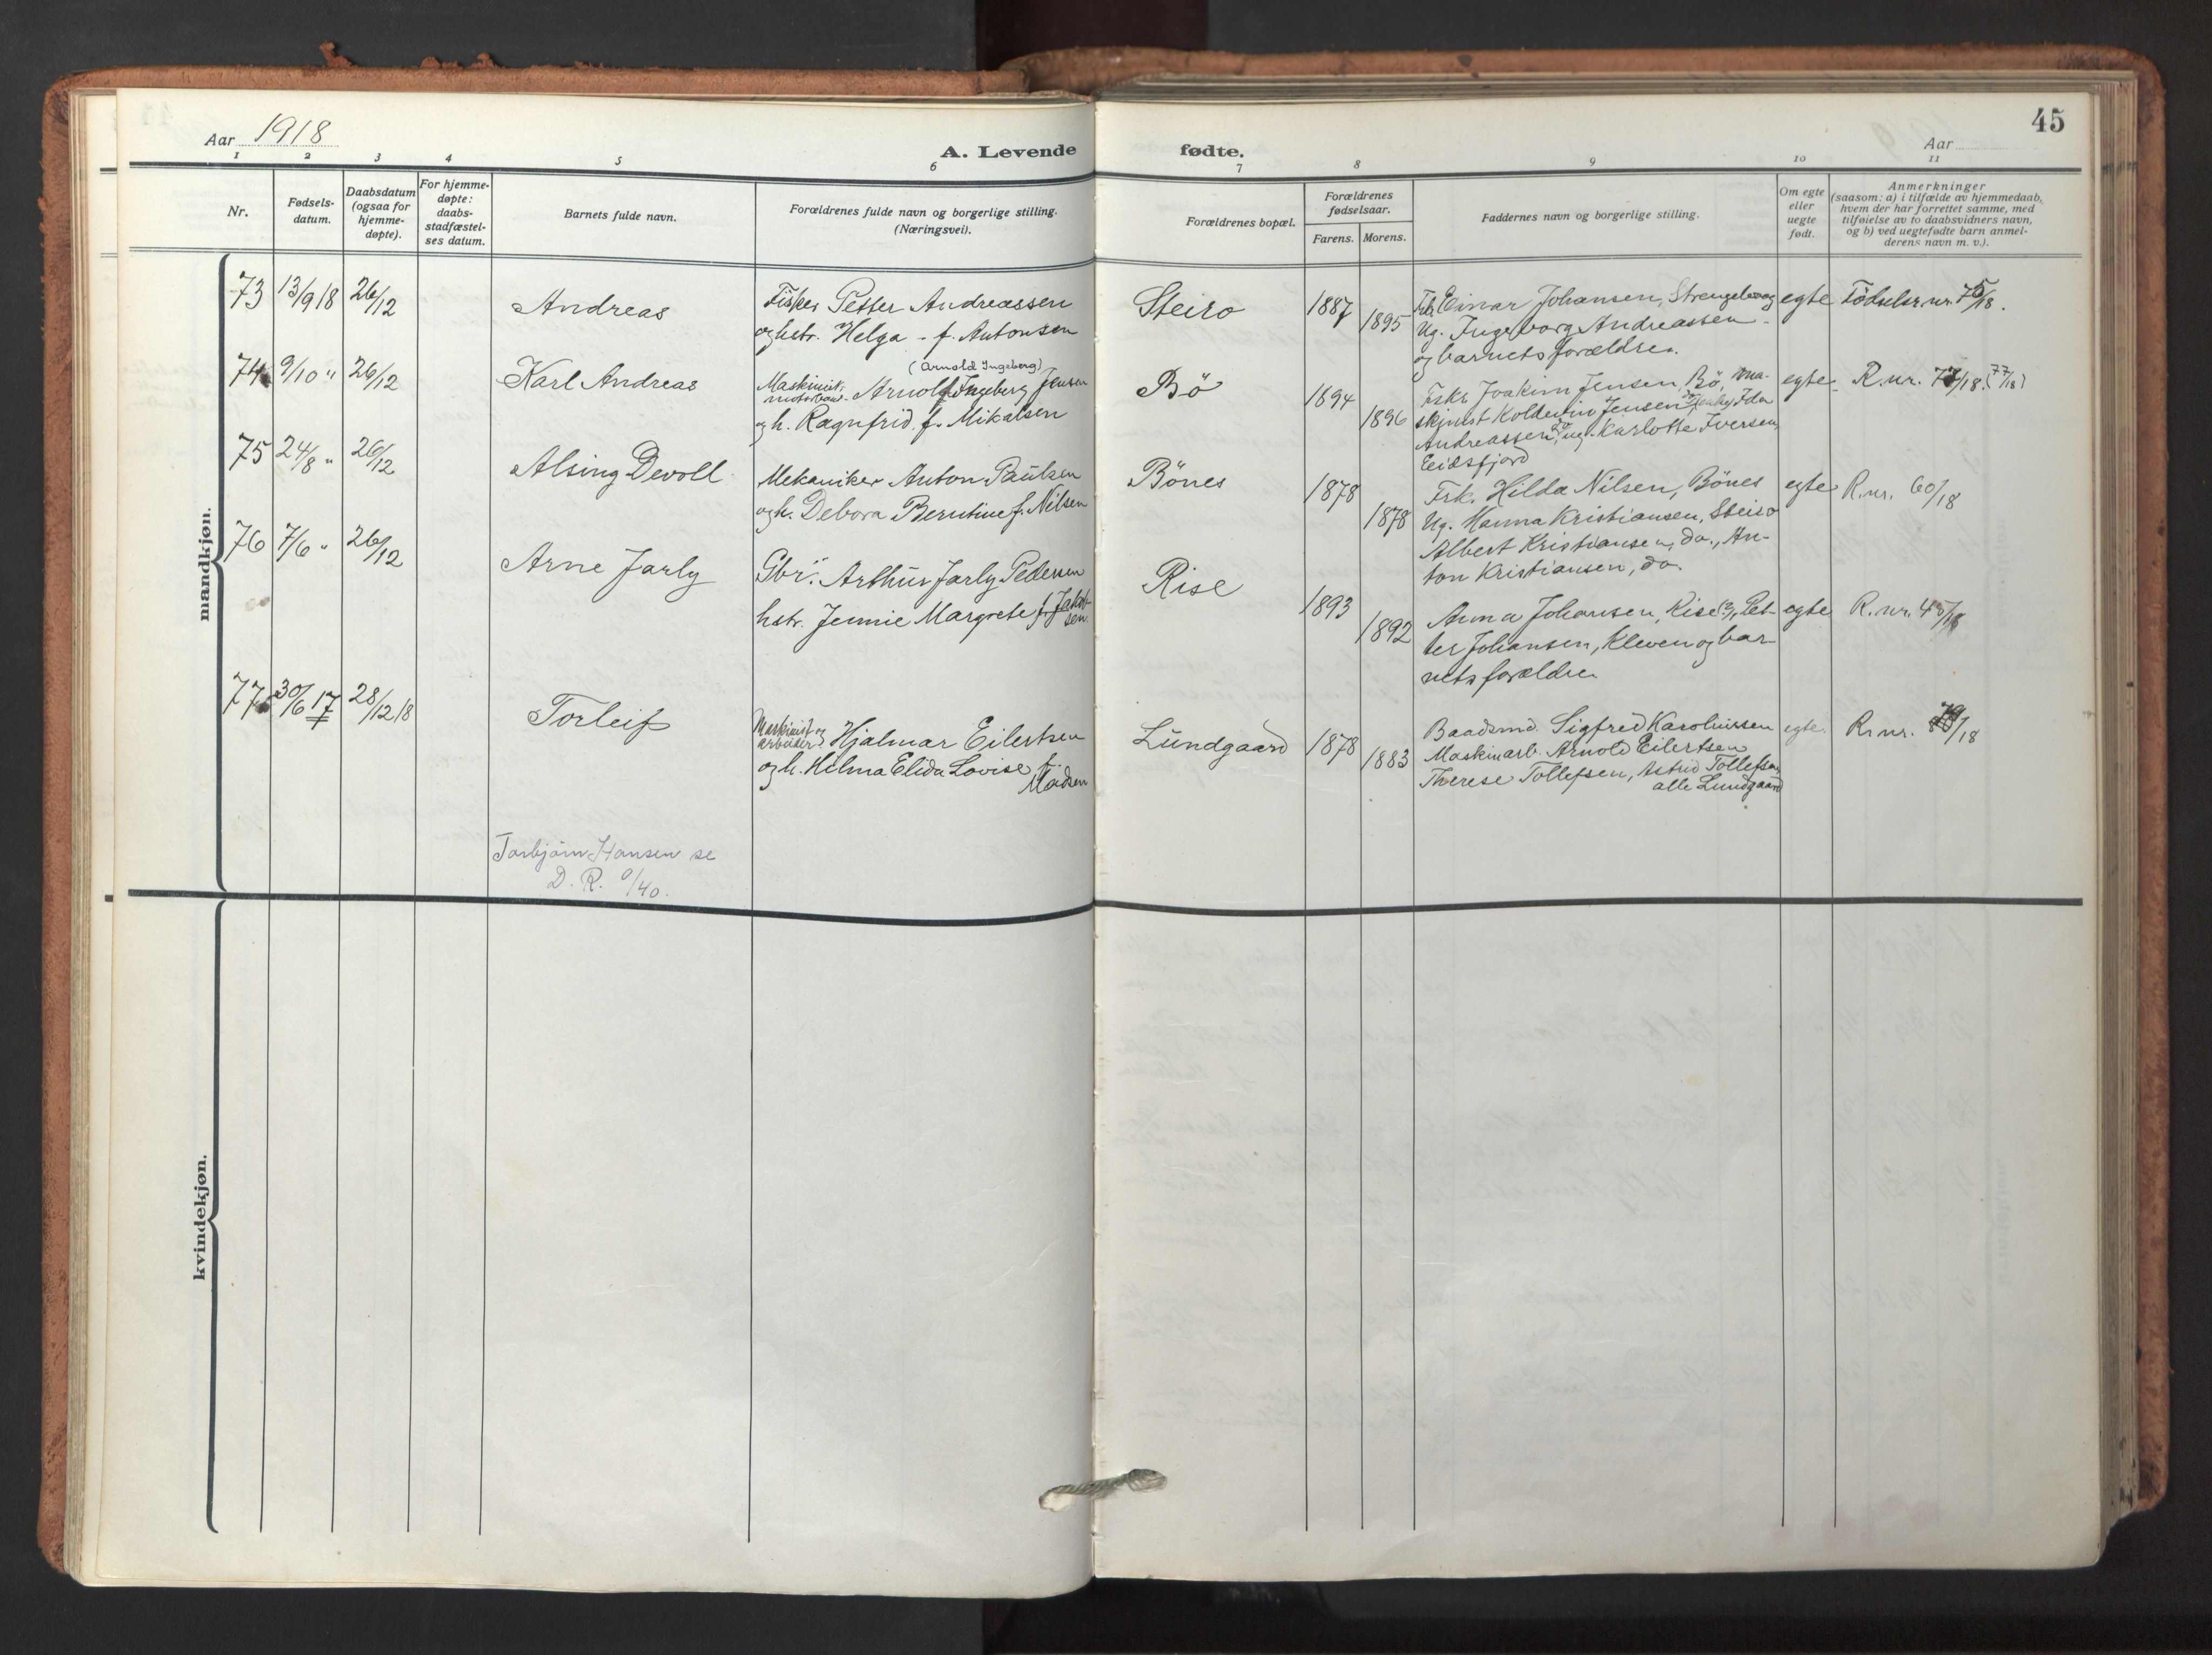 Aar 1918
A. Levende
1 2 3 4 5 6
Nr.
Fødsels-
datum.
Daabsdatum
(ogsaa for
hjemme-
døpte).
For hjemme-
døpte:
daabs-
stadfæstel-
ses datum.
Barnets fulde navn.
Forældrenes fulde navn og borgerlige stilling.
(Næringsvei).
45
fødte.
Aar
7 8 9 10 11
Forældrenes bopæl.
Forældrenes
fødselsaar.
Farens. Morens.
Faddernes navn og borgerlige stilling.
Om egte
eller
uegte
født.
Anmerkninger
(saasom: a) i tilfælde av hjemmedaab,
hvem der har forrettet samme, med
tilføielse av to daabsvidners navn,
og b) ved uegtefødte barn anmel-
derens navn m. v.).
mandkjøn.
73 13/9 18 26/12 Andreas
Fisker Petter Andreassen
og hstr. Helga - f. Antonsen
Steiro 1887 1895
Einar Johansen, Strengelvaag
Ug. Ingeborg Andreassen
og barnets forældre.
egte Fødselsr. nr. 75/18.
74 9/10 " 26/12 Karl Andreas
(Arnold Ingeberg)
Maskinist, Arnolf Ingeberg Jensen
og h. Ragnfrid f. Mikalsen
Bö 1894 1896
Fskr Joakim Jensen, Bö, ma-
skinist Koldevin Jensen, Ida
Andreassen, ug. Karlotte Iversen,
Eidsfjord
egte R. nr. 77/18. (77/18)
75 24/8 " 26/12 Alsing Devoll
Mekaniker Anton Paulsen
og h. Debora Berntine f. Nilsen
Bönes 1878 1878
Frk. Hilda Nilsen, Bönes
Ug. Hanna Kristiansen, Steiro
Albert Kristiansen, do., An-
ton Kristiansen, do.
egte R. nr. 60/18
76 7/6 " 26/12 Arne Jarly
Gbr. Arthur Jarly Pedersen
hstr. Jennie Margrete f. Jakob-
sen.
Rise 1893 1892
Anna Johansen, Rise, Pet-
ter Johansen, Kleven og bar-
nets forældre
egte R. nr. 45/18
77 30/6 17 28/12 18 Torleif
Maskinist og
arbeider Hjalmar Eilertsen
og h. Hilma Elida Lovise f.
Madsen
Lundgaard 1878 1883
Baadsmd. Sigfred Karolinssen
Maskinarb. Arnold Eilertsen
Therese Tollefsen, Astrid Tollefsen
alle Lundgaard
egte R. nr. 79/18
Torbjörn Hansen se
D. R. 9/40.
kvindekjøn.